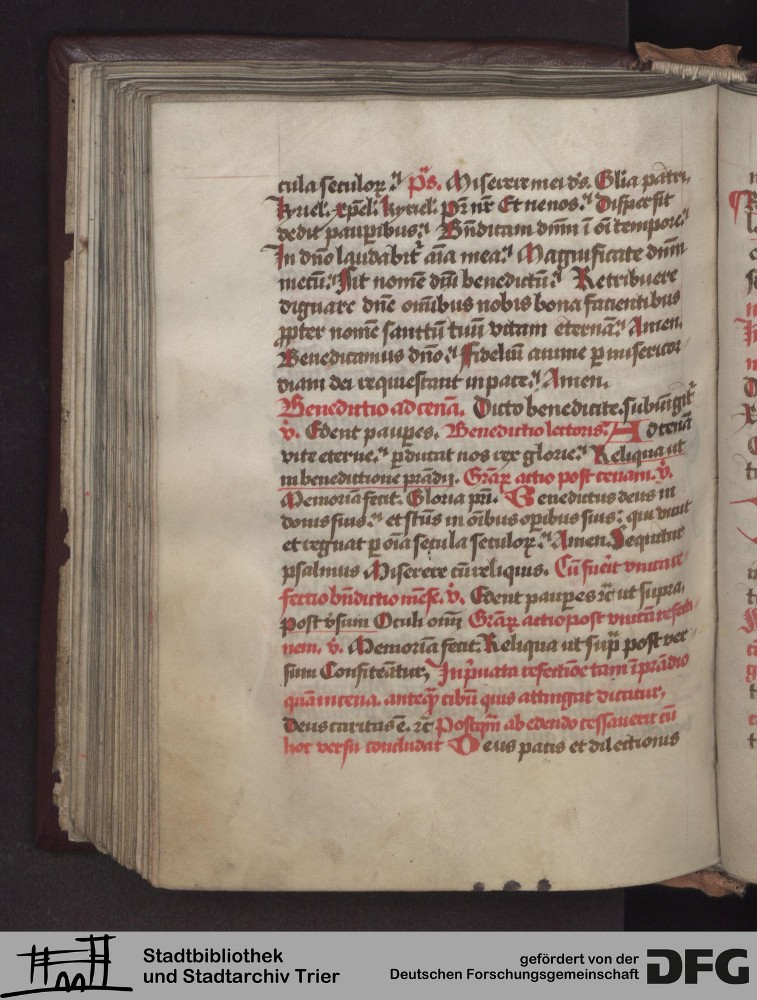 cula seculoꝝ. ps. Miserere mei ds. Glia patri.
kyriel. xpel. kyriel. Pr nr Et ne nos. Dispersit
dedit pauꝑibus. Bn̄dicam dnm̄ ī oī tempore.
In dn̄o laudabit̉ aīa mea. Magnificate dnm̄
mecū. Sit nomē dn̄i benedictū. Retribuere
dignare dn̄e om̄ibus nobis bona facientibus
ꝓpter nomē sanctū tuū vitam eternā. Amen.
Benedicamus dn̄o. Fideliū anime ꝑ misericor
diam dei requiescant in pace. Amen.
Benedictio ad cenā. Dicto benedicite. subiūgit̉
v̄. Edent pauꝑes. Benedictio lectoris. Ad cenā
vite eterne. ꝑducat nos rex glorie. Reliqua ut
in benedictione prādij. Grāꝝ actio post cenam. v̄.
Memoriā fecit. Gloria pri. Benedictus deus in
donis suis. et scūs in oībus oꝑibus suis: qui viuit
et regnat ꝑ oīa secula seculoꝝ. Amen. Sequitur
psalmus Miserere cū reliquis. Cū fuerit vnica re-
fectio bn̄dictio mēse. v̄. Edent pauꝑes ꝛc̄ ut supra.
post v̉sum Oculi oīm Grāꝝ actio post vnicā refecti-
nem. v̄. Memoriā fecit. Reliqua ut sup̄ post ver
sum Confiteātur, In p̉uata refectiōe tam ī prādio
quā in cena. anteqȝ cibū quis attingat dicatur,
Deus caritas ē. ꝛc̄ Postqm̄ ab edendo cessauerit cū
hoc versu concludat Deus pacis et dilectionis
Stadtbibliothek
und Stadtarchiv Trier
gefördert von der
Deutschen Forschungsgemeinschaft
DFG